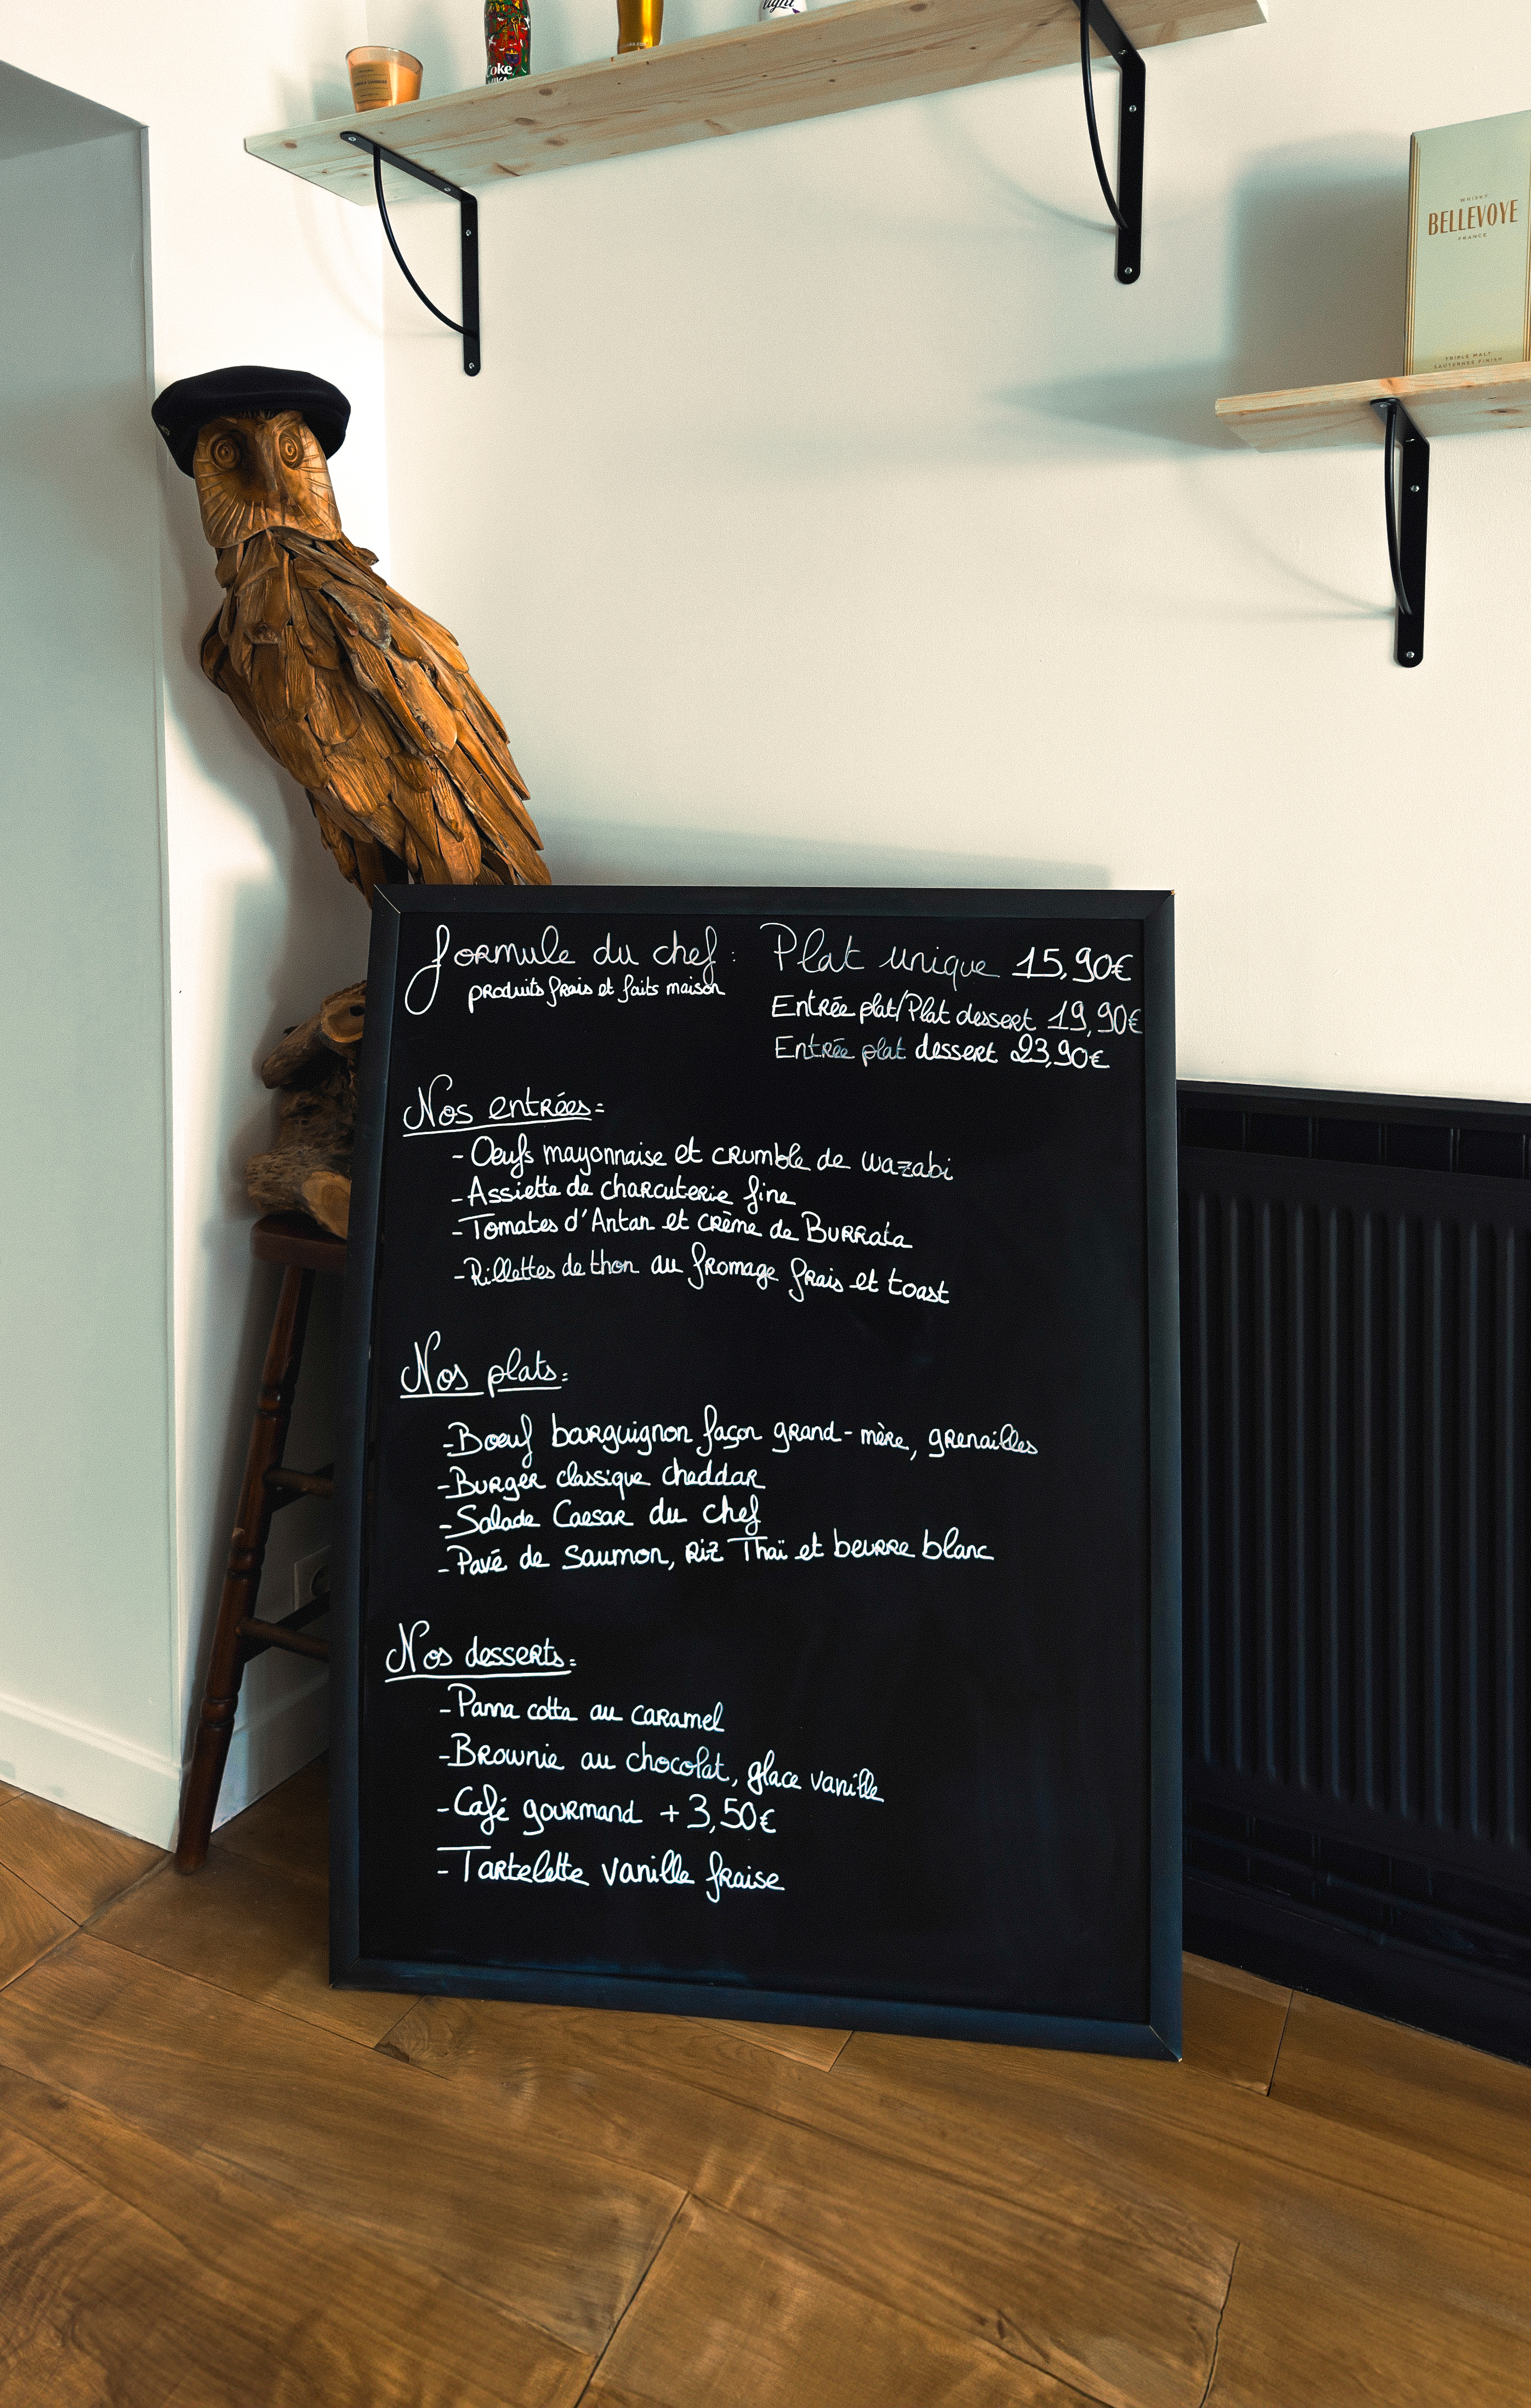 light
Coke
WHISKY
BELLEVOYE
FRANCE
TRIPLE MALT
SAUTERNES FINISH
formule du chef:
produits frais et faits maison
Plat unique 15,90€
Entrée plat/Plat dessert 19,90€
Entrée plat dessert 23,90€
Nos entrées:
- Oeufs mayonnaise et crumble de wazabi
- Assiette de charcuterie fine
- Tomates d'Antan et crème de Burrata
- Rillettes de thon au fromage frais et toast
Nos plats:
- Boeuf bourguignon façon grand-mère, grenailles
- Burger classique cheddar
- Salade Caesar du chef
- Pavé de saumon, riz Thaï et beurre blanc
Nos desserts:
- Panna cotta au caramel
- Brownie au chocolat, glace vanille
- Café gourmand +3,50€
- Tartelette vanille fraise